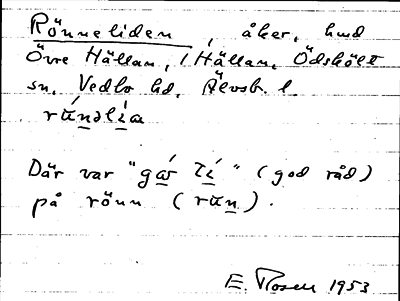 Rönneliden, åker, hmd
Övre Hällan, 1 Hällan, Ödskölt
sn, Vedbo hd, Älvsb. l.
Där var "gav tí" (god råd)
på rönn (run).
E. Rosell 1953